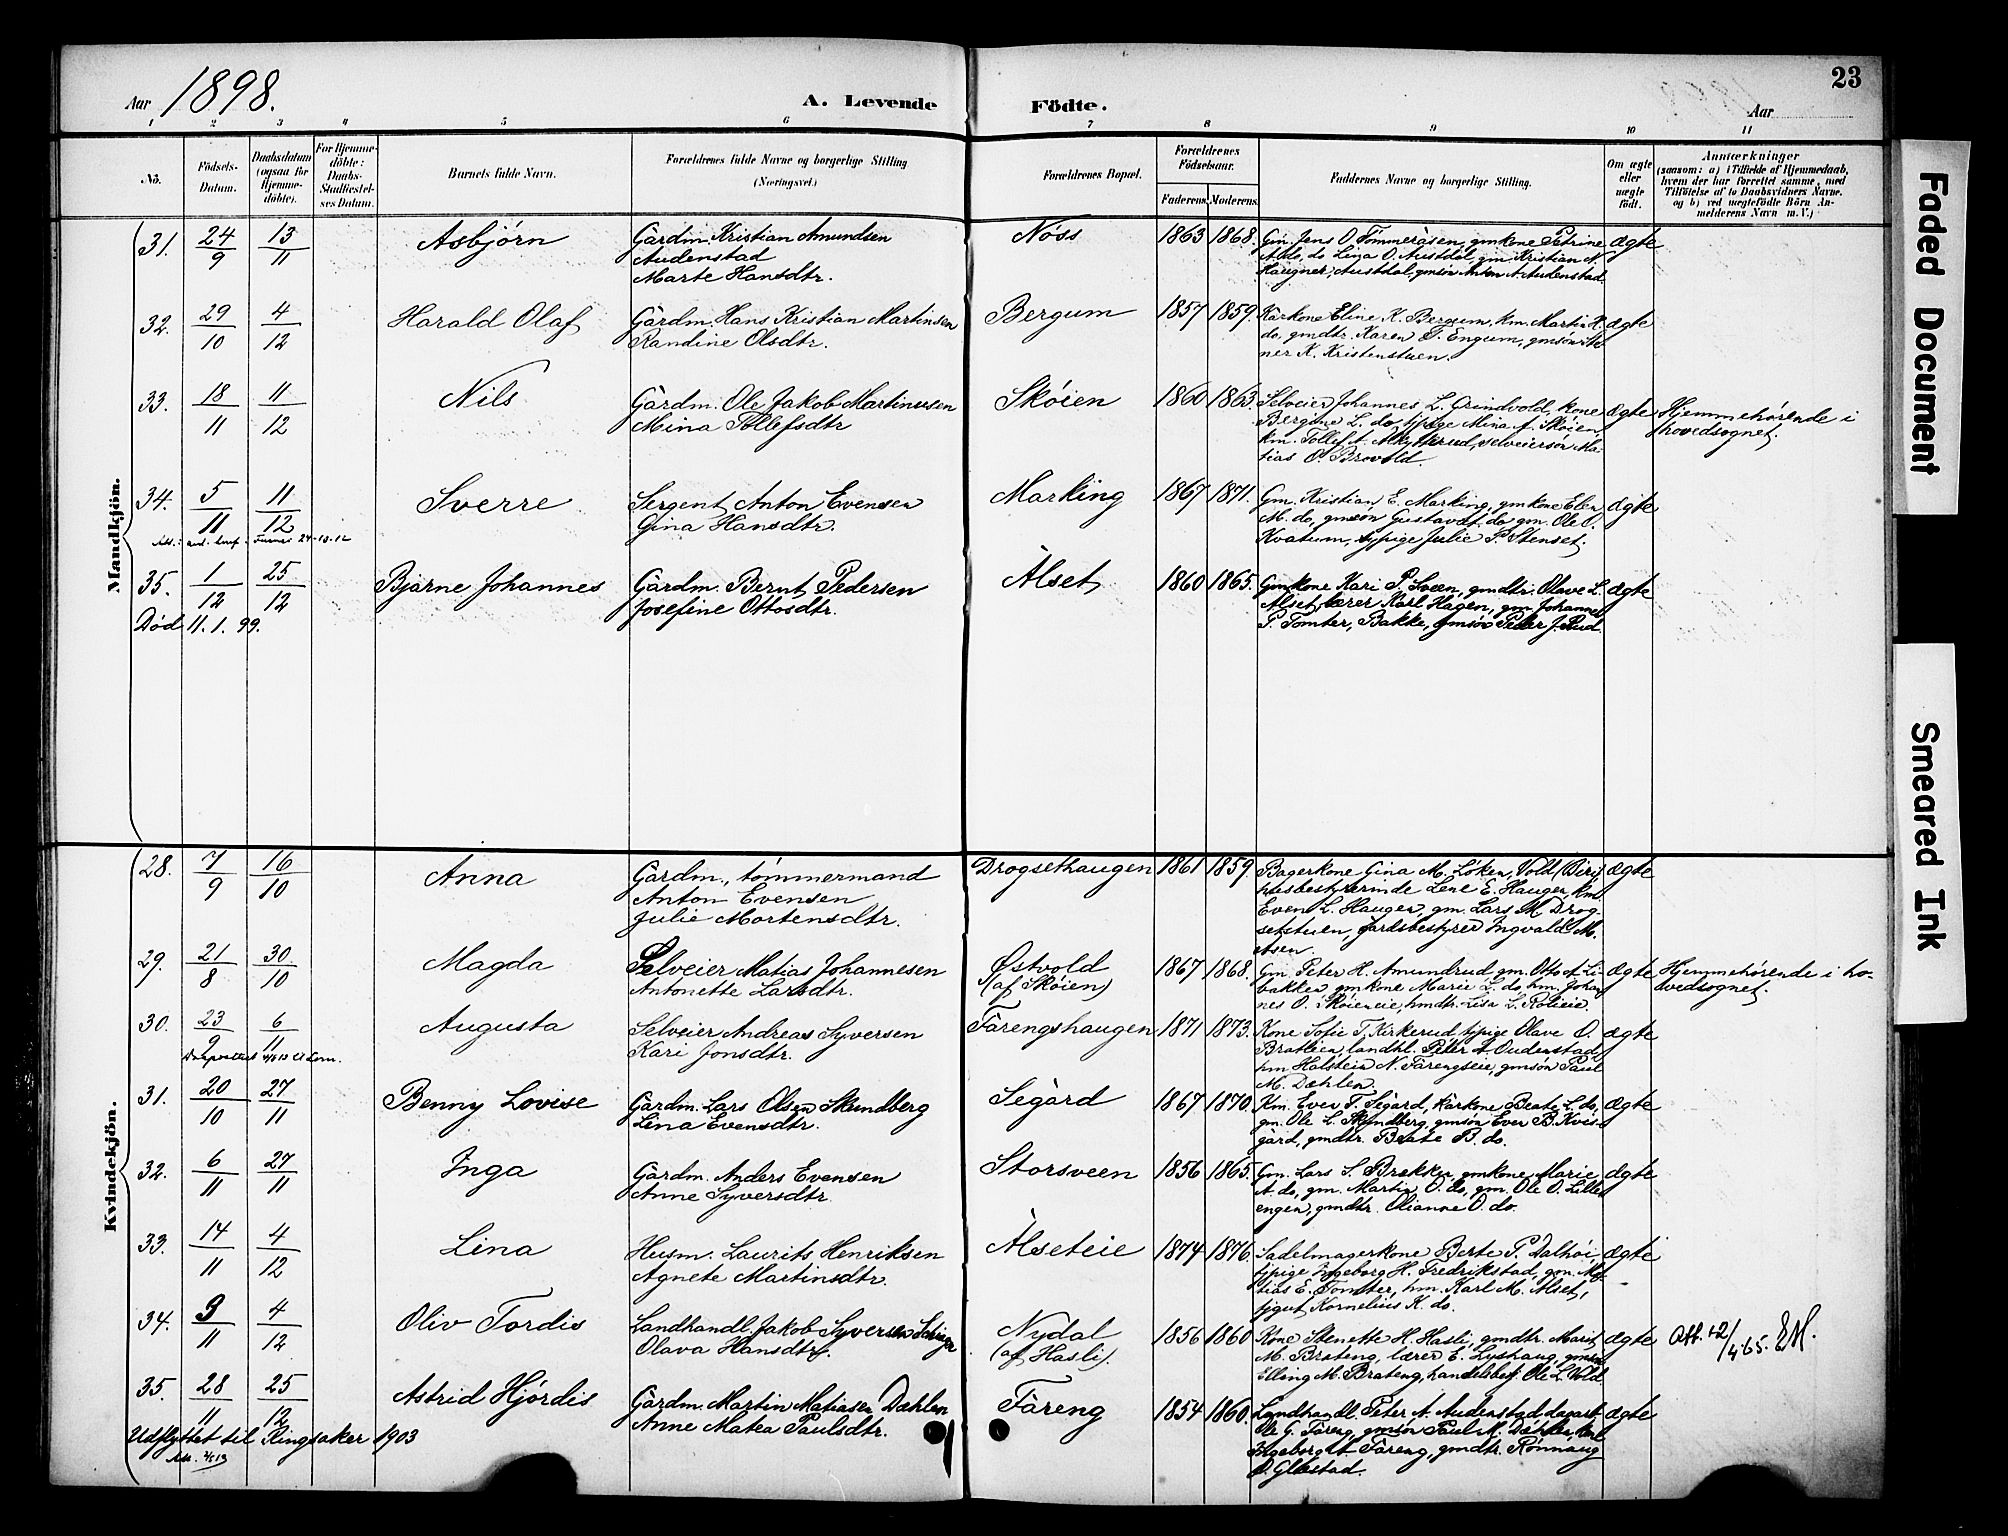 Aar 1898.
A. Levende Födte.
Aar
23
1 2 3 4 5 6 7 8 9 10 11
No.
Födsels-
Datum.
Daabsdatum
(ogsaa for
Hjemme-
döbte).
For Hjemme-
döbte:
Daabs-
Stadfæstel-
ses Datum.
Barnets fulde Navn.
Forældrenes fulde Navne og borgerlige Stilling
(Næringsvei.)
Forældrenes Bopæl.
Forældrenes
Födselsaar.
Faderens. Moderens.
Faddernes Navne og borgerlige Stilling.
Om ægte
eller
uægte
födt.
Anmærkninger
(saasom: a) i Tilfælde af Hjemmedaab,
hvem der har forrettet samme, med
Tilföielse af to Daabsvidners Navne,
og b) ved uægtefödte Börn An-
melderens Navn m. V.)
Mandkjön.
31. 24/9 13/11 Asbjörn
Gårdm. Kristian Amundsen
Audenstad
Marte Hansdtr.
Nöss 1863 1868.
Gm. Jens O. Tömmeråsen, gmkone Petrine
A. do, do Lina O. Austdal, gm. Kristian N.
Haugner, Austdal, gmsön Anton A. Audenstad.
ægte
32. 29/10 4/12 Harald Olaf
Gårdm. Hans Kristian Martinsen
Randine Olsdtr.
Bergum 1857 1859.
Kårkone Eline K. Bergum, km. Martin H.
do, gmdtr. Karen T. Engum, gmsön
ner K. Kristenstuen.
ægte
33. 18/11 11/12 Nils
Gårdm. Ole Jakob Martinusen
Mina Tollefsdtr
Sköien 1860 1863.
Selveier Johannes L. Grindvold, kone
Bergine L. do, tjpige Mina A. Sköien
km. Tollef T. selveiersön Ma-
tias O. Brovold.
ægte
Hjemmehörende i
hovedsognet.
34. 5/11 11/12 Sverre
Sergent Anton Evensen
Gina Hansdtr.
Marking 1867 1871.
Gm. Kristian E. Marking, gmkone Elen
M. do, gmsön Gustav do, gm. Ole O.
Kvatum, tjpige Julie P. Stenset.
ægte
35. 1/12 25/12 Bjarne Johannes
Gårdm. Bernt Pedersen
Josefine Ottosdtr.
Ålset 1860 1865.
Gmkone Kari P. Sveen, gmdtr. Olave L.
Alset, lærer Karl Hagen, gm Johannes
P. Tomter, Bakke, gmsön Peder J. Rud.
ægte
Död 11.1.99.
Kvindekjön.
28. 7/9 16/10 Anna
Gårdm., tömmermand
Anton Evensen
Julie Mortensdtr.
Drogsethaugen 1861 1859.
Bagerkone Gina M. Löken, Vold (Biri)
husbestyrerinde Lene E. Haugen, km.
Even L. Haugen, gm. Lars M. Drog-
setstuen, gårdsbestyrer Ingvald M.
ægte
29. 21/8 30/10 Magda
Selveier Matias Johannesen
Antonette Larsdtr.
Östvold
(af Sköien)
1867 1868.
Gm. Peter H. Amundrud, gm. Otto A. Li-
bakken, gmkone Marie L. do, hm. Johan-
nes O. Sköieneie, hmdtr. Lisa L.
ægte
Hjemmehörende i ho-
vedsognet.
30. 23/9 6/11 Augusta
Selveier Andreas Syversen
Kari Jonsdtr.
Färengshaugen 1871 1873.
Kone Sofie T. Kirkerud, tjpige Olave O.
Brotlien, landhl. Peter A. Oudenstad,
hm Halstein N. Färengseie, gmsön Paul
M. Dæhlen.
ægte
31. 20/10 27/11 Benny Lovise
Gårdm. Lars Olsen Skundberg
Lina Evensdtr.
Segård 1867 1870.
Km. Even T. Segård, kårkone Beate L. do,
gm. Ole L. Skundberg, gmsön Even B. Kvis-
gård, gmdtr. Beate B. do.
ægte
32. 6/11 27/11 Inga
Gårdm. Anders Evensen
Anne Syversdtr.
Storsveen 1856 1865.
Gm. Lars S. Brekken, gmkone Marie
A. do, gm. Martin O. do, gm. Ole O. Lille-
engen, gmdtr. Olianne O. do.
ægte
33. 14/11 4/12 Lina
Husm. Laurits Henriksen
Agnete Martinsdtr.
Ålseteie 1874 1876.
Sadelmagerkone Berte P. Dalhöi,
tjpige Ingeborg H. Fredrikstad, gm. Ma-
tias E. Tomter, hm. Karl M. Alset,
tjgut Kornelius K. do.
ægte
34. 9/11 4/12 Oliv Tordis
Landhandl. Jakob Syversen
Olava Hansdtr.
Nydal
(af Hasli).
1856 1860
Kone Stenette H. Hasli, gmdtr. Marit
M. Bråteng, lærer E. Lyshaug, gmsön
Elling M. Bråteng, handelsbetj. Ole L. Vold.
ægte
35. 28/11 25/12 Astrid Hjördis
Gårdm. Martin Matiasen Dæhlen
Anne Matea Paulsdtr.
Färeng 1854 1860.
Landhandl. Peter A. Audenstad,
Ole G. Färeng, gmsön Paul M. Dæhlen,
Ingeborg A. Färeng, gmdtr. Rönnaug
O. Glæstad.
ægte
Udflyttet til Ringsaker 1903
Faded Document
Smeared Ink